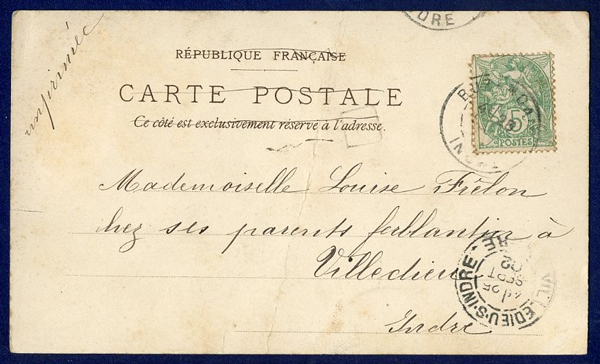 imprimée
RÉPUBLIQUE FRANÇAISE
CARTE POSTALE
Ce côté est exclusivement réservé à l'adresse.
5
POSTES
INDRE
Mademoiselle Louise Frélon
chez ses parents à
Villedieu
Indre
VILLEDIEU-S-INDRE
25
SEPT
02